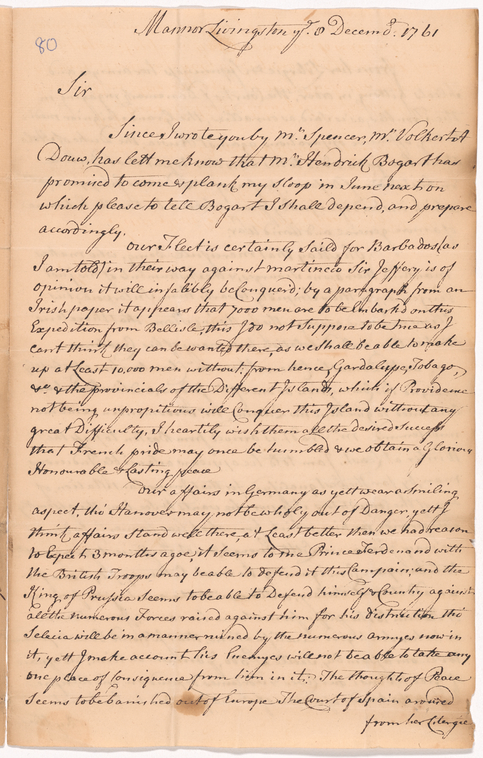 80
Mannor Livingston ye. 8 Decemr. 1761
Sir
Since I wrote you by Mr. Spencer, Mr. Volkert A
Douw, has lett me know that Mr. Hendrick Bogart has
promised to come & plank my sloop in June next on
which please to tele Bogart I shall depend, and prepare
accordingly.
Our Fleet is certainly Saild for Barbados (as
I am told) in their way against martineco Sir Jeffery is of
opinion it will infalibly be Conquerd; by a paragraph from an
Irish paper it appears that 7000 men are to be Embarkd on this
Expedition from Bellisle, this I do not Suppose to be true as I
cant think they can be wanted there, as we shall be able to make
up at Least 10,000 men without; from hence, Gardalupe, Tobago,
&c. & the provincials of the Different Islands, which if Providence
not being unpropitious will Conquer this Island without any
great Difficulty, I heartily wish them all the desired Success
that French pride may once be humbled & we obtain a Glorious
Honourable & Lasting peace
Our affairs in Germany as yett wear a Smiling
aspect, tho Hanover may not be wholy out of Danger, yett I
think affairs Stand well there, at Least better then we had reason
to Expect 3 months agoe, it Seems to me Prince Ferdenand with
the British Troops may be able to defend it this Campain, and the
King of Prussia Seems to be able to Defend himself & Country against
all the numerous Forces raised against him for his distruction tho
Selecia will be in a manner ruined by the numerous armyes now in
it, yett I make account his Enemyes will not be able to take any
one place of Consiquence from him in it. The thoughts of Peace
Seems to be banished out of Europe The Court of Spain
from her